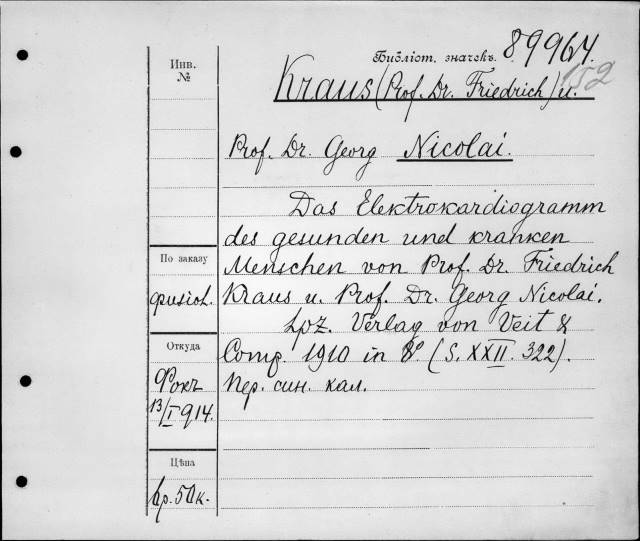 Библіот. значекъ. 89964.
152
Инв.
№
Kraus (Prof. Dr. Friedrich) u.
Prof. Dr. Georg Nicolai.
Das Elektrokardiogramm
des gesunden und kranken
Menschen von Prof. Dr. Friedrich
Kraus u. Prof. Dr. Georg Nicolai.
Lpz. Verlag von Veit &
Comp. 1910 in 8º. (S. XXII. 322).
Пер. син. кал.
По заказу
физіол.
Откуда
Фокъ
13/I 914.
Цѣна
6р. 50к.